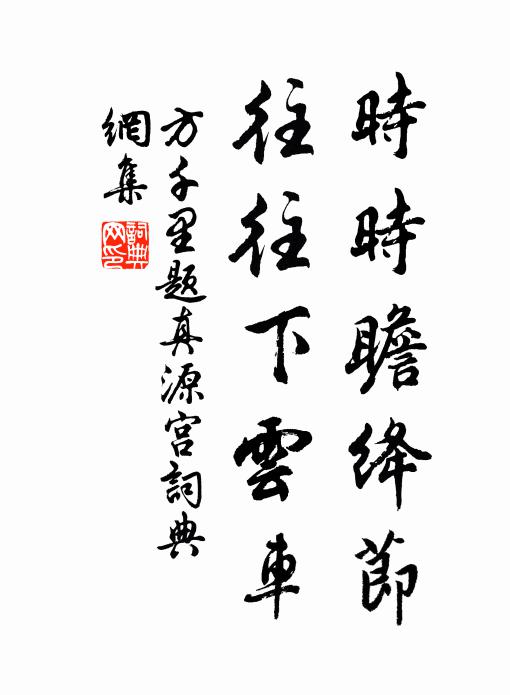 時時瞻絳節
往往下雲車
方千里題真源宮詞典
網集
詞典
网印